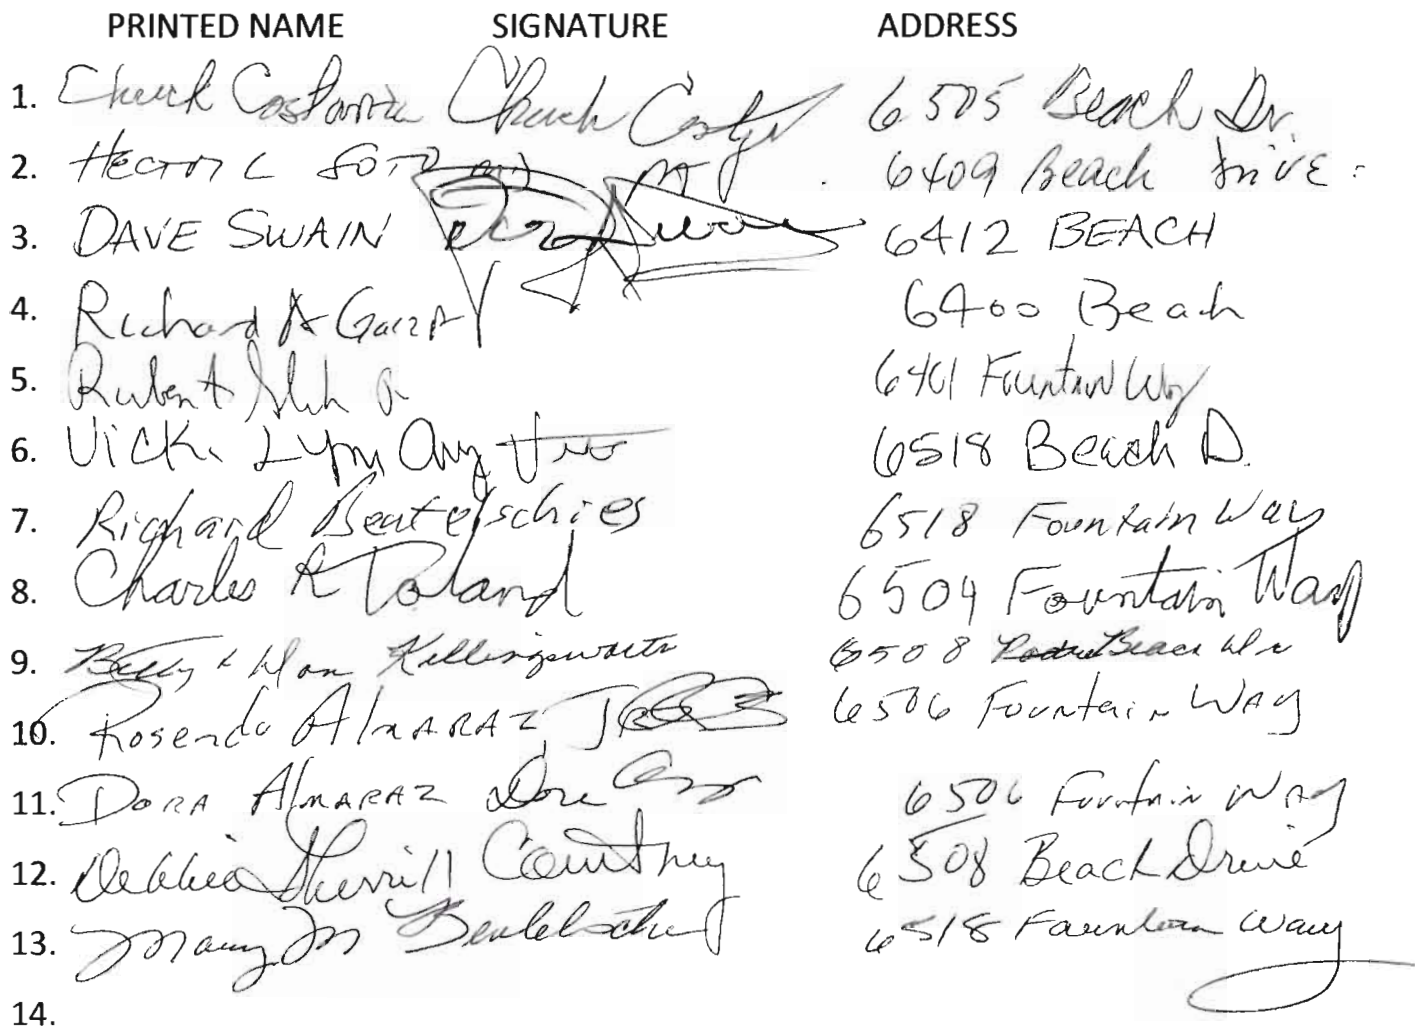 PRINTED NAME SIGNATURE ADDRESS
1. Chuck Costanza Chuck 6505 Beach Dr.
2. Hector L SOTO 6409 Beach Drive
3. DAVE SWAIN 6412 BEACH
4. Richard A Garza 6400 Beach
5. 6401 Fountain Way
6. Vicki Lynn 6518 Beach D.
7. Richard Beutelschies 6518 Fountain Way
8. Charles R Toland 6504 Fountain Way
9. Betty & Don Killingsworth 6508 Beach
10. Rosendo AlmARAZ 6506 Fountain WAy
11. DORA AlmARAZ Dora 6506 Fountain WAy
12. Debbie Sherrill Courtney 6508 Beach Drive
13. Mary M 6518 Fountain Way
14.